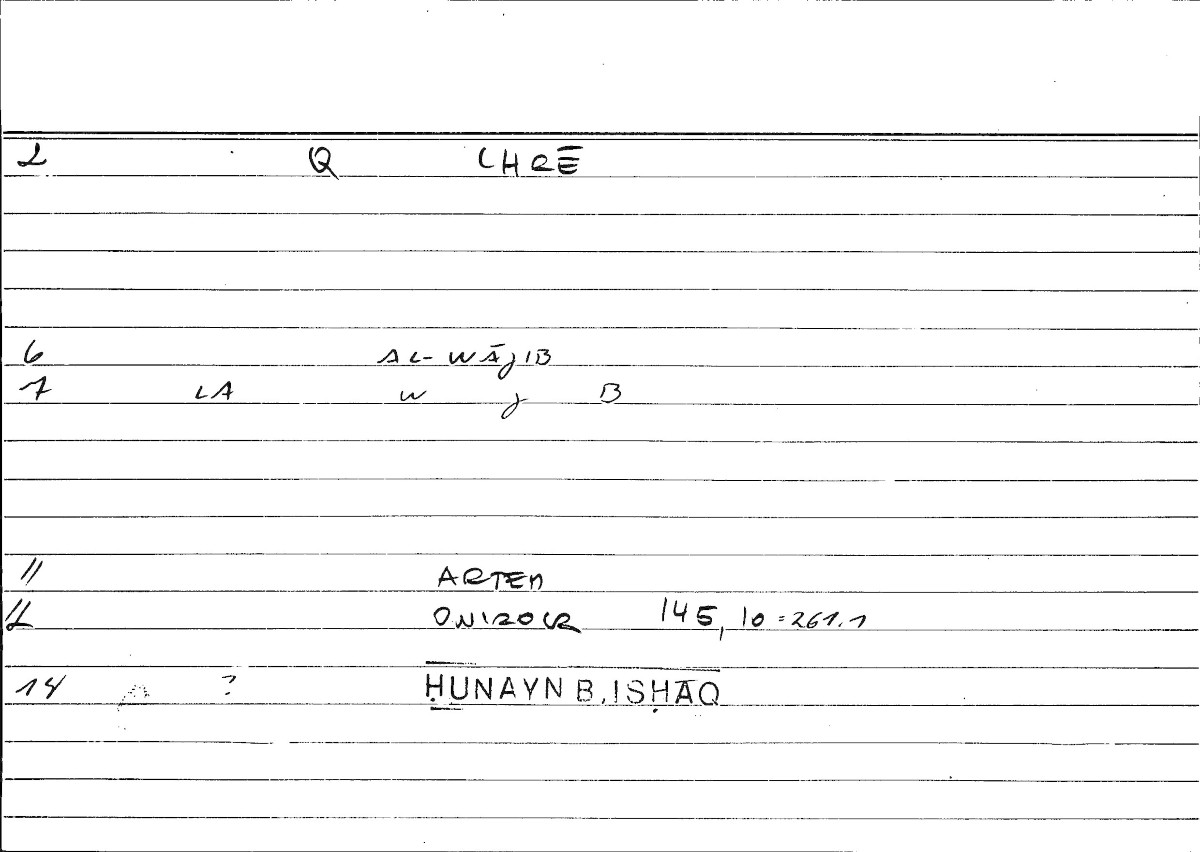 2 Q CHRĒ
6 AL-WĀJIB
7 LA W J B
11 ARTEM
12 ONIROCR 145, 10 = 261.1
14 ? ḤUNAYN B. ISḤĀQ